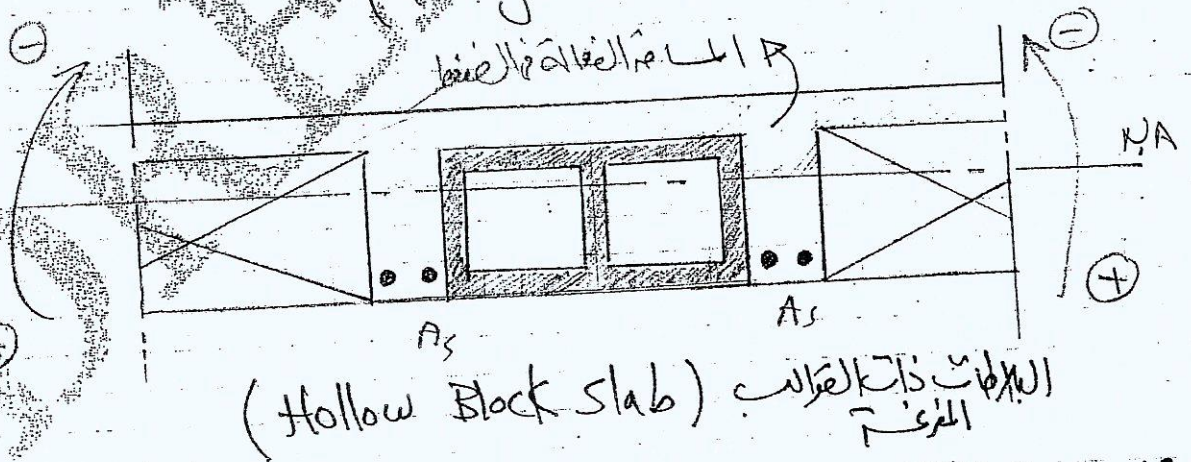 ⊖
المساحة الفعالة في الضغط
⊖
N.A
⊕
As
As
(Hollow Block Slab) البلاطات ذات القوالب
المفرغة